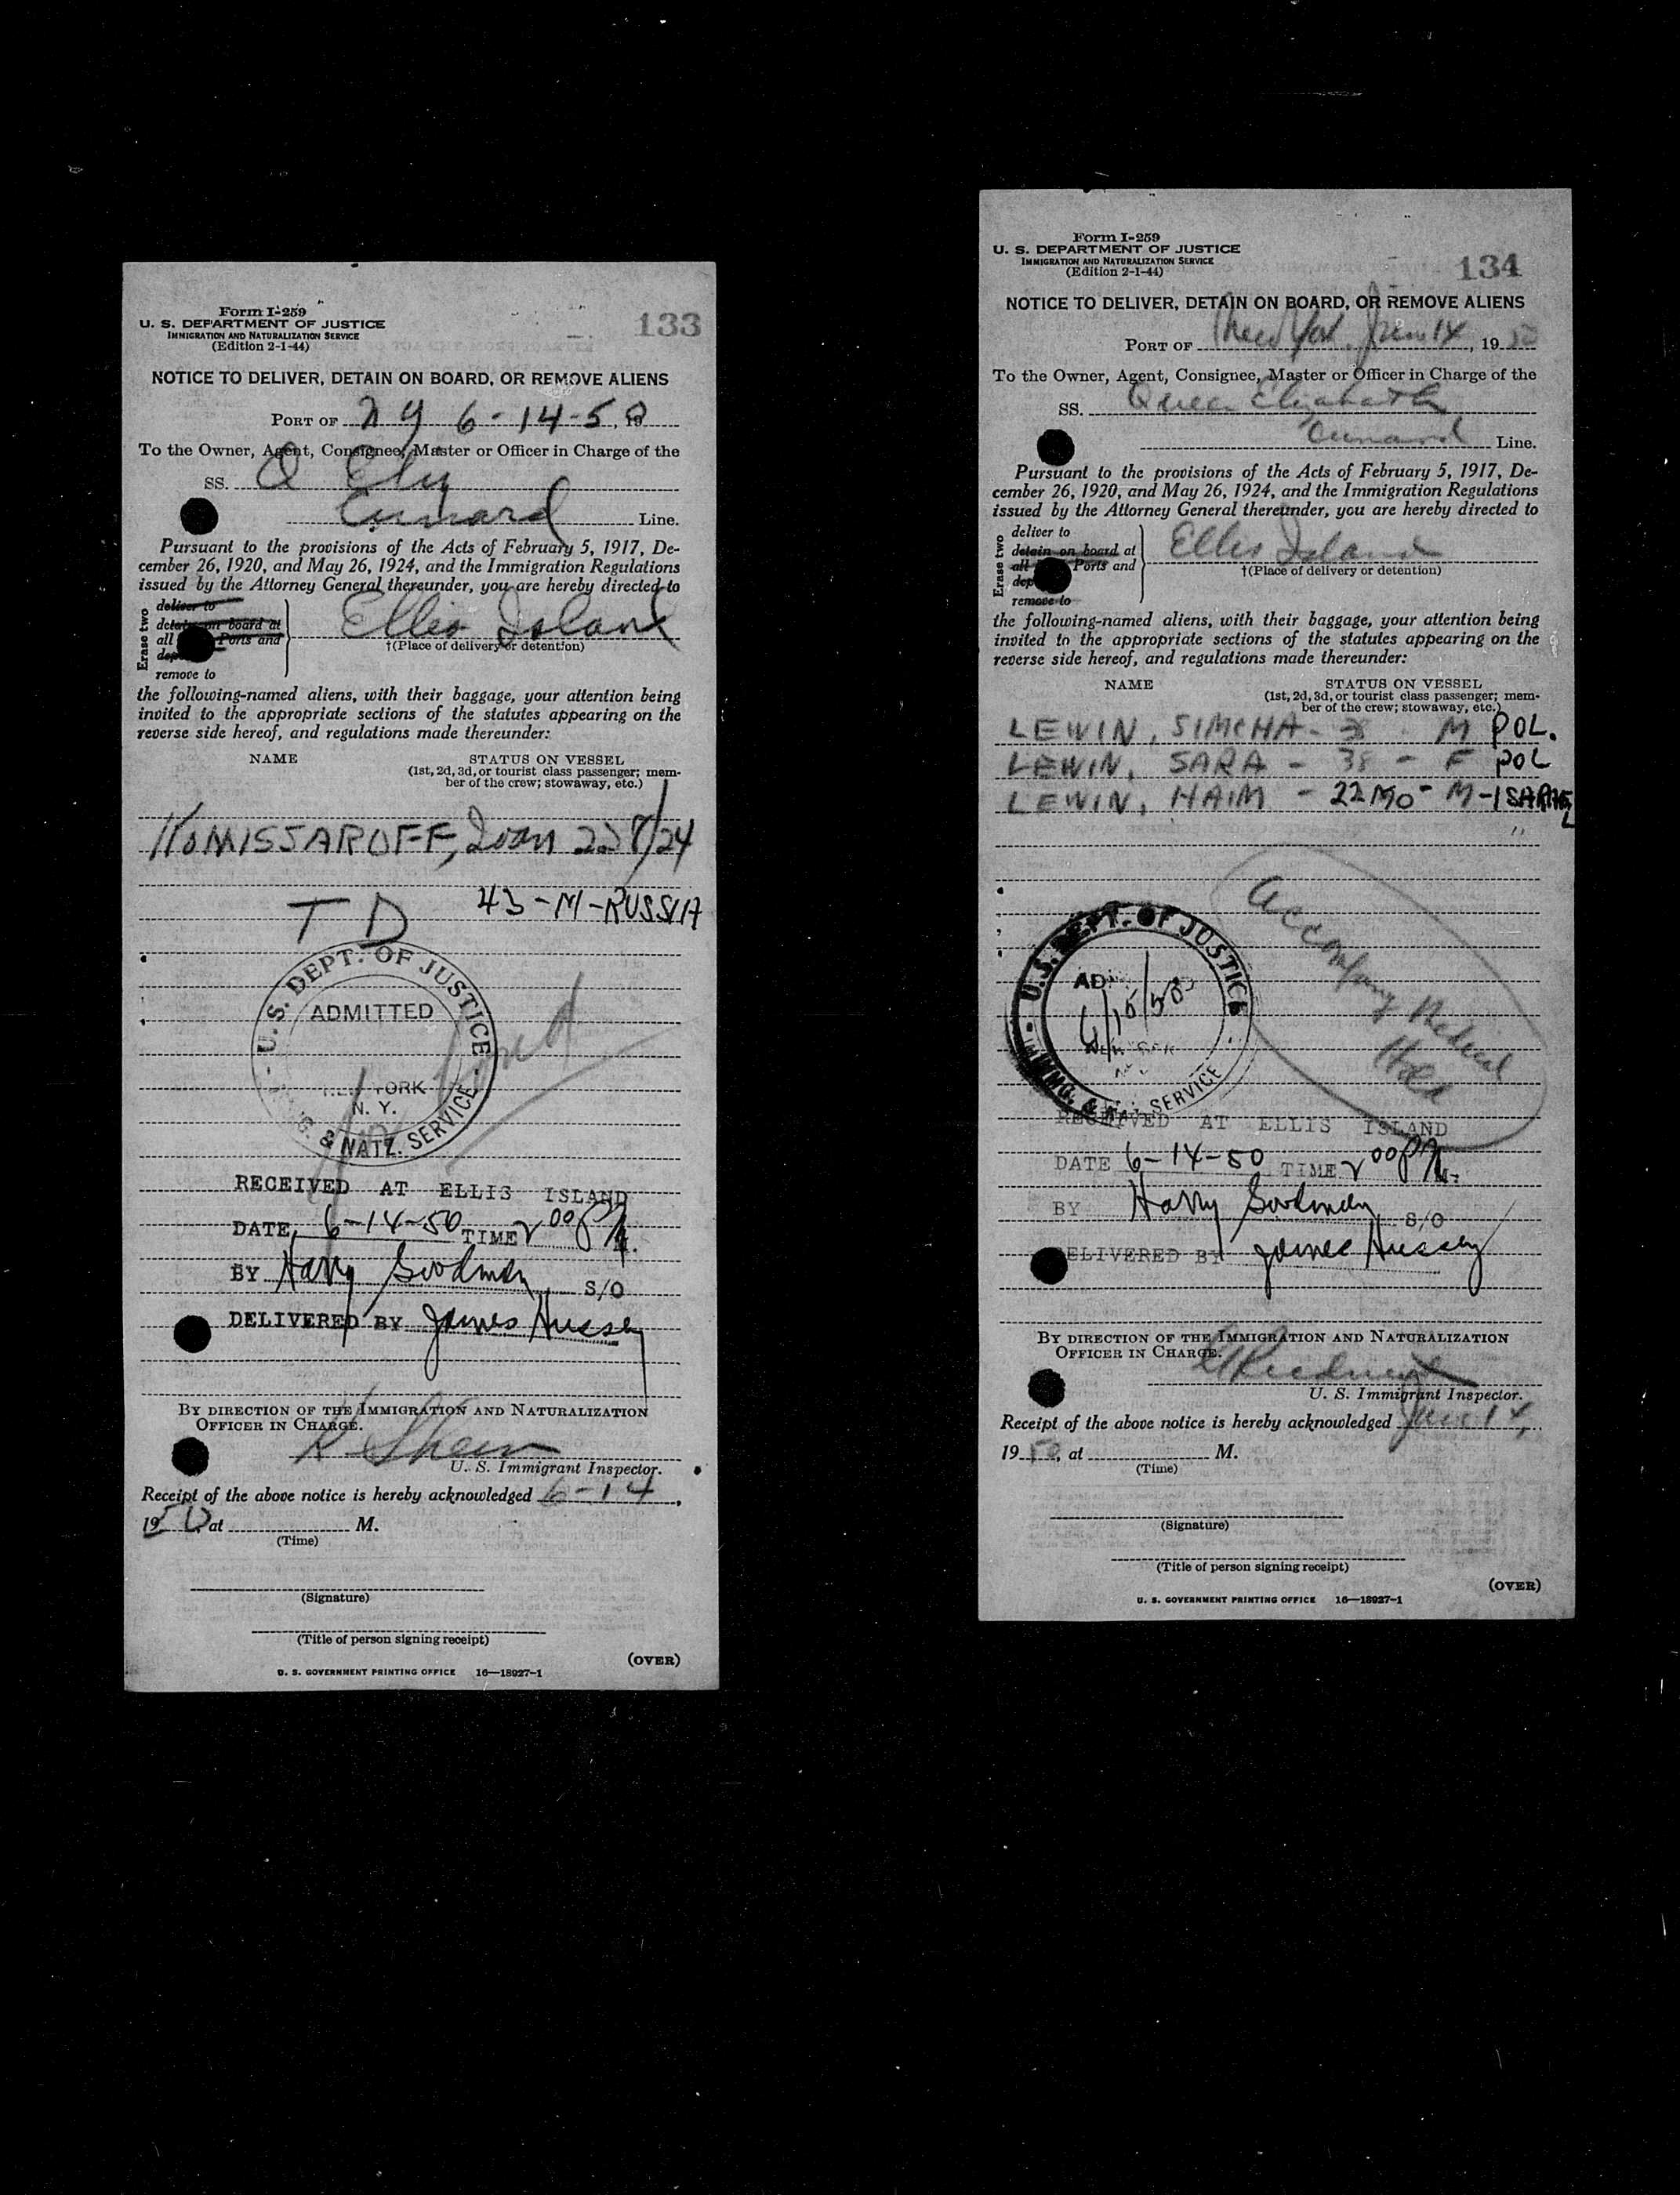 Form I-259
U. S. DEPARTMENT OF JUSTICE
IMMIGRATION AND NATURALIZATION SERVICE
(Edition 2-1-44)
133
NOTICE TO DELIVER, DETAIN ON BOARD, OR REMOVE ALIENS
PORT OF N Y 6-14-50, 19
To the Owner, Agent, Consignee, Master or Officer in Charge of the
SS. Q Eliz
Cunard Line.
Pursuant to the provisions of the Acts of February 5, 1917, De-
cember 26, 1920, and May 26, 1924, and the Immigration Regulations
issued by the Attorney General thereunder, you are hereby directed to
Erase two
deliver to
detain on board at
all Ports and
remove to
Ellis Island
†(Place of delivery or detention)
the following-named aliens, with their baggage, your attention being
invited to the appropriate sections of the statutes appearing on the
reverse side hereof, and regulations made thereunder:
NAME STATUS ON VESSEL
(1st, 2d, 3d, or tourist class passenger; mem-
ber of the crew; stowaway, etc.)
KOMISSAROFF, Ivan 22 8/24
43-M-RUSSIA
T D
U. S. DEPT. OF JUSTICE
ADMITTED
NEW YORK
N. Y.
& NATZ. SERVICE
RECEIVED AT ELLIS ISLAND
DATE 6-14-50 TIME 2 00 P M.
BY Harry Goodman S/O
DELIVERED BY James Hussey
BY DIRECTION OF THE IMMIGRATION AND NATURALIZATION
OFFICER IN CHARGE.
U. S. Immigrant Inspector.
Receipt of the above notice is hereby acknowledged 6-14,
19 50 at M.
(Time)
(Signature)
(Title of person signing receipt)
(OVER)
U. S. GOVERNMENT PRINTING OFFICE 16—18927-1
Form I-259
U. S. DEPARTMENT OF JUSTICE
IMMIGRATION AND NATURALIZATION SERVICE
(Edition 2-1-44)
134
NOTICE TO DELIVER, DETAIN ON BOARD, OR REMOVE ALIENS
PORT OF New York June 14, 19 50
To the Owner, Agent, Consignee, Master or Officer in Charge of the
SS. Queen Elizabeth
Cunard Line.
Pursuant to the provisions of the Acts of February 5, 1917, De-
cember 26, 1920, and May 26, 1924, and the Immigration Regulations
issued by the Attorney General thereunder, you are hereby directed to
Erase two
deliver to
detain on board at
all Ports and
remove to
Ellis Island
†(Place of delivery or detention)
the following-named aliens, with their baggage, your attention being
invited to the appropriate sections of the statutes appearing on the
reverse side hereof, and regulations made thereunder:
NAME STATUS ON VESSEL
(1st, 2d, 3d, or tourist class passenger; mem-
ber of the crew; stowaway, etc.)
LEWIN, SIMCHA - M POL.
LEWIN, SARA - 38 - F POL
LEWIN, HAIM - 22 MO - M - ISARAEL
Accompany Medical
Hold
U. S. DEPT. OF JUSTICE
6/15/50
SERVICE
RECEIVED AT ELLIS ISLAND
DATE 6-14-50 TIME 2 00 P M.
BY Harry Goodman S/O
DELIVERED BY James Hussey
BY DIRECTION OF THE IMMIGRATION AND NATURALIZATION
OFFICER IN CHARGE.
U. S. Immigrant Inspector.
Receipt of the above notice is hereby acknowledged June 14,
19 50, at M.
(Time)
(Signature)
(Title of person signing receipt)
(OVER)
U. S. GOVERNMENT PRINTING OFFICE 16—18927-1